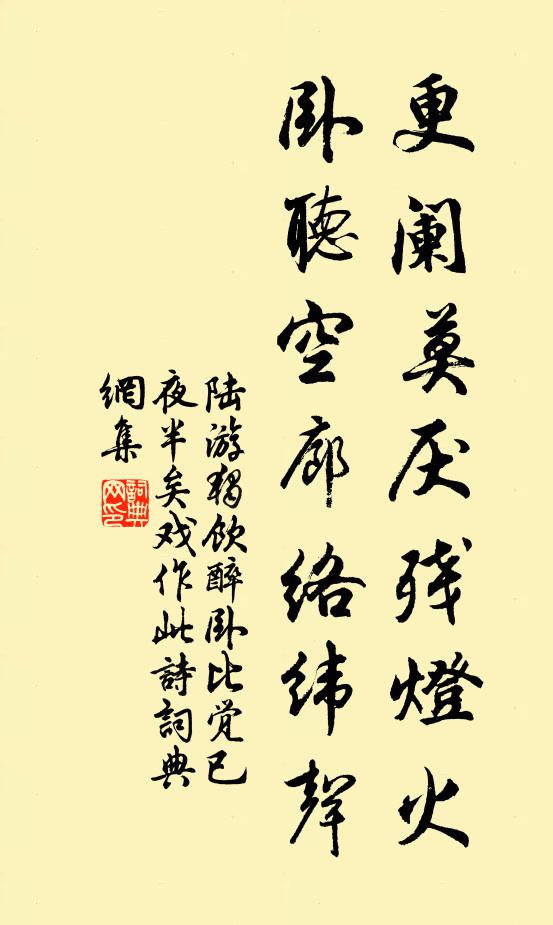 更阑莫厌残燈火
卧聽空廊络纬聲
陆游独饮醉卧比觉已
夜半矣戏作此詩詞典
網集
詞典
网印